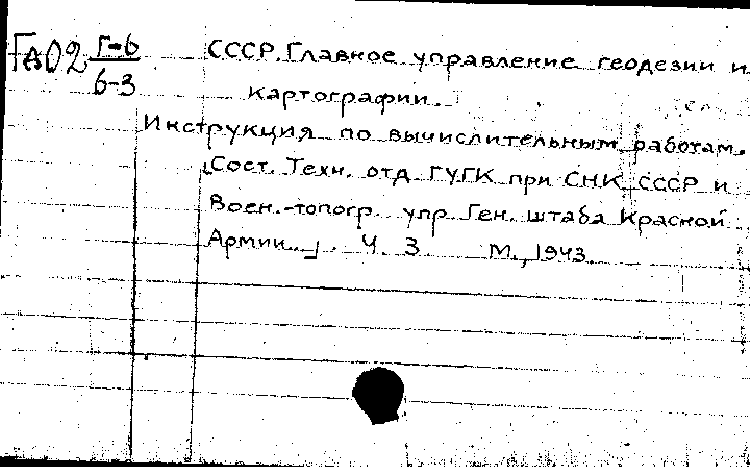 ГА02 Г-6
6-3
СССР. Главное управление геодезии и
картографии.
Инструкция по вычислительным работам.
[Сост. Техн. отд ГУГК при СНК СССР и
Воен.-топогр. упр Ген. штаба Красной
Армии..]. Ч 3 М., 1943.